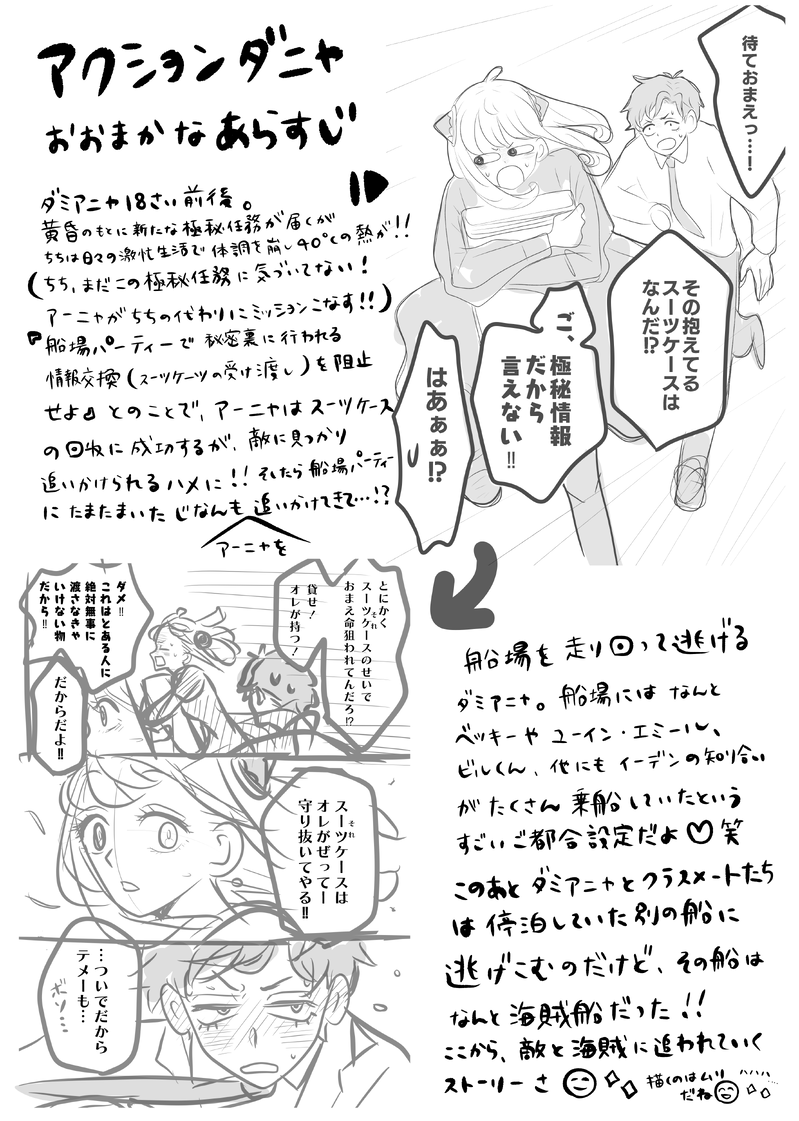 アクションダミアニャ
おおまかなあらすじ
ダミアニャ18さい前後。
黄昏のもとに新たな極秘任務が届くが
ちちは日々の激忙生活で体調を崩し40℃の熱が!!
(ちち、まだこの極秘任務に気づいてない!
アーニャがちちの代わりにミッションこなす!!)
『船場パーティーで秘密裏に行われる
情報交換(スーツケーツの受け渡し)を阻止
せよ』とのことで、アーニャはスーツケース
の回収に成功するが、敵に見つかり
追いかけられるハメに!!そしたら船場パーティー
にたまたまいたじなんも追いかけてきて…!?
アーニャを
待ておまえっ…!
その抱えてる
スーツケースは
なんだ!?
ご、
極秘情報
だから
言えない!!
はあぁぁ!?
とにかく
スーツケースのせいで
それ
おまえ命狙われてんだろ!?
貸せ!
オレが持つ!
ダメ!!
これはとある人に
絶対無事に
渡さなきゃ
いけない物
だから!!
だからだよ!!
スーツケースは
それ
オレがぜってー
守り抜いてやる!!
…ついでだから
テメーも…
ボソ…
船場を走り回って逃げる
ダミアニャ。船場にはなんと
ベッキーやユーイン・エミール、
ビルくん、他にもイーデンの知り合い
がたくさん乗船していたという
すごいご都合設定だよ♡笑
このあとダミアニャとクラスメートたち
は停泊していた別の船に
逃げこむのだけど、その船は
なんと海賊船だった!!
ここから、敵と海賊に追われていく
ストーリーさ
描くのはムリ
だね